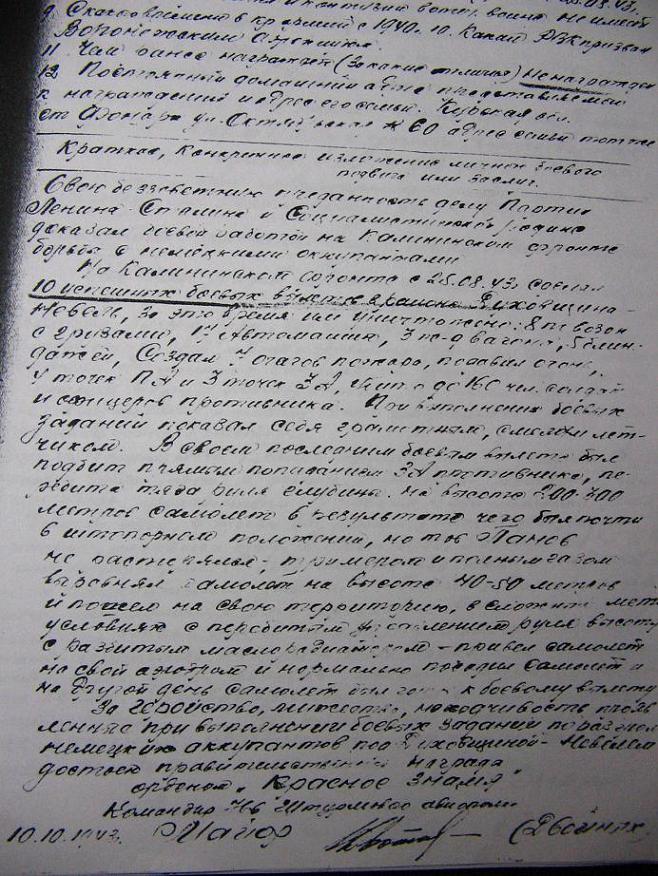 9. в Красной с 1940 г. 10. Каким РВК призван
11. Чем ранее награжден (За какие отличия) Не награжден
12. Постоянный домашний адрес представляемого
к награждению и адрес его семьи. Курская обл.
ул. Октябрьская № 60 адрес семьи тот же
Краткое, конкретное изложение личного боевого
подвига или заслуг.
Свою беззаветную преданность делу Партии
Ленина-Сталина и Социалистической родине
доказал боевой работой на Калининском фронте
борьбе с немецкими оккупантами
На Калининском фронте с 25.08.43.
10 успешных боевых в районе Духовщина-
Невель, за это время им уничтожено: 8 повозок
с грузами, Автомашин, 3 вагона, 5 блин-
дажей, Создал очагов пожара, подавил огонь
точек ПА и 3 точек ЗА, до 160 чел. солдат
и офицеров противника. При выполнении боевых
заданий показал себя грамотным, смелым лет-
чиком. В своем последнем боевом вылете был
подбит прямым попаданием ЗА противника, пе-
ребита тяга руля глубины. На высоте 200-300
метров самолет в результате чего был почти
в штопорном положении, но тов Панов
не растерялся, и полным газом
выровнял самолет на высоте 40-50 метров
и пошел на свою территорию, в сложных
условиях с перебитым управлением руля высоты
с разбитым маслорадиатором - привел самолет
на свой аэродром и нормально посадил самолет и
на другой день самолет был к боевому вылету
За геройство, находчивость прояв
ленные при выполнении боевых заданий по
немецких аккупантов под Духовщиной-Невелем
достоен правительственной награды
орденом „Красное Знамя"
Командир Штурмового
10.10.1943. Майор